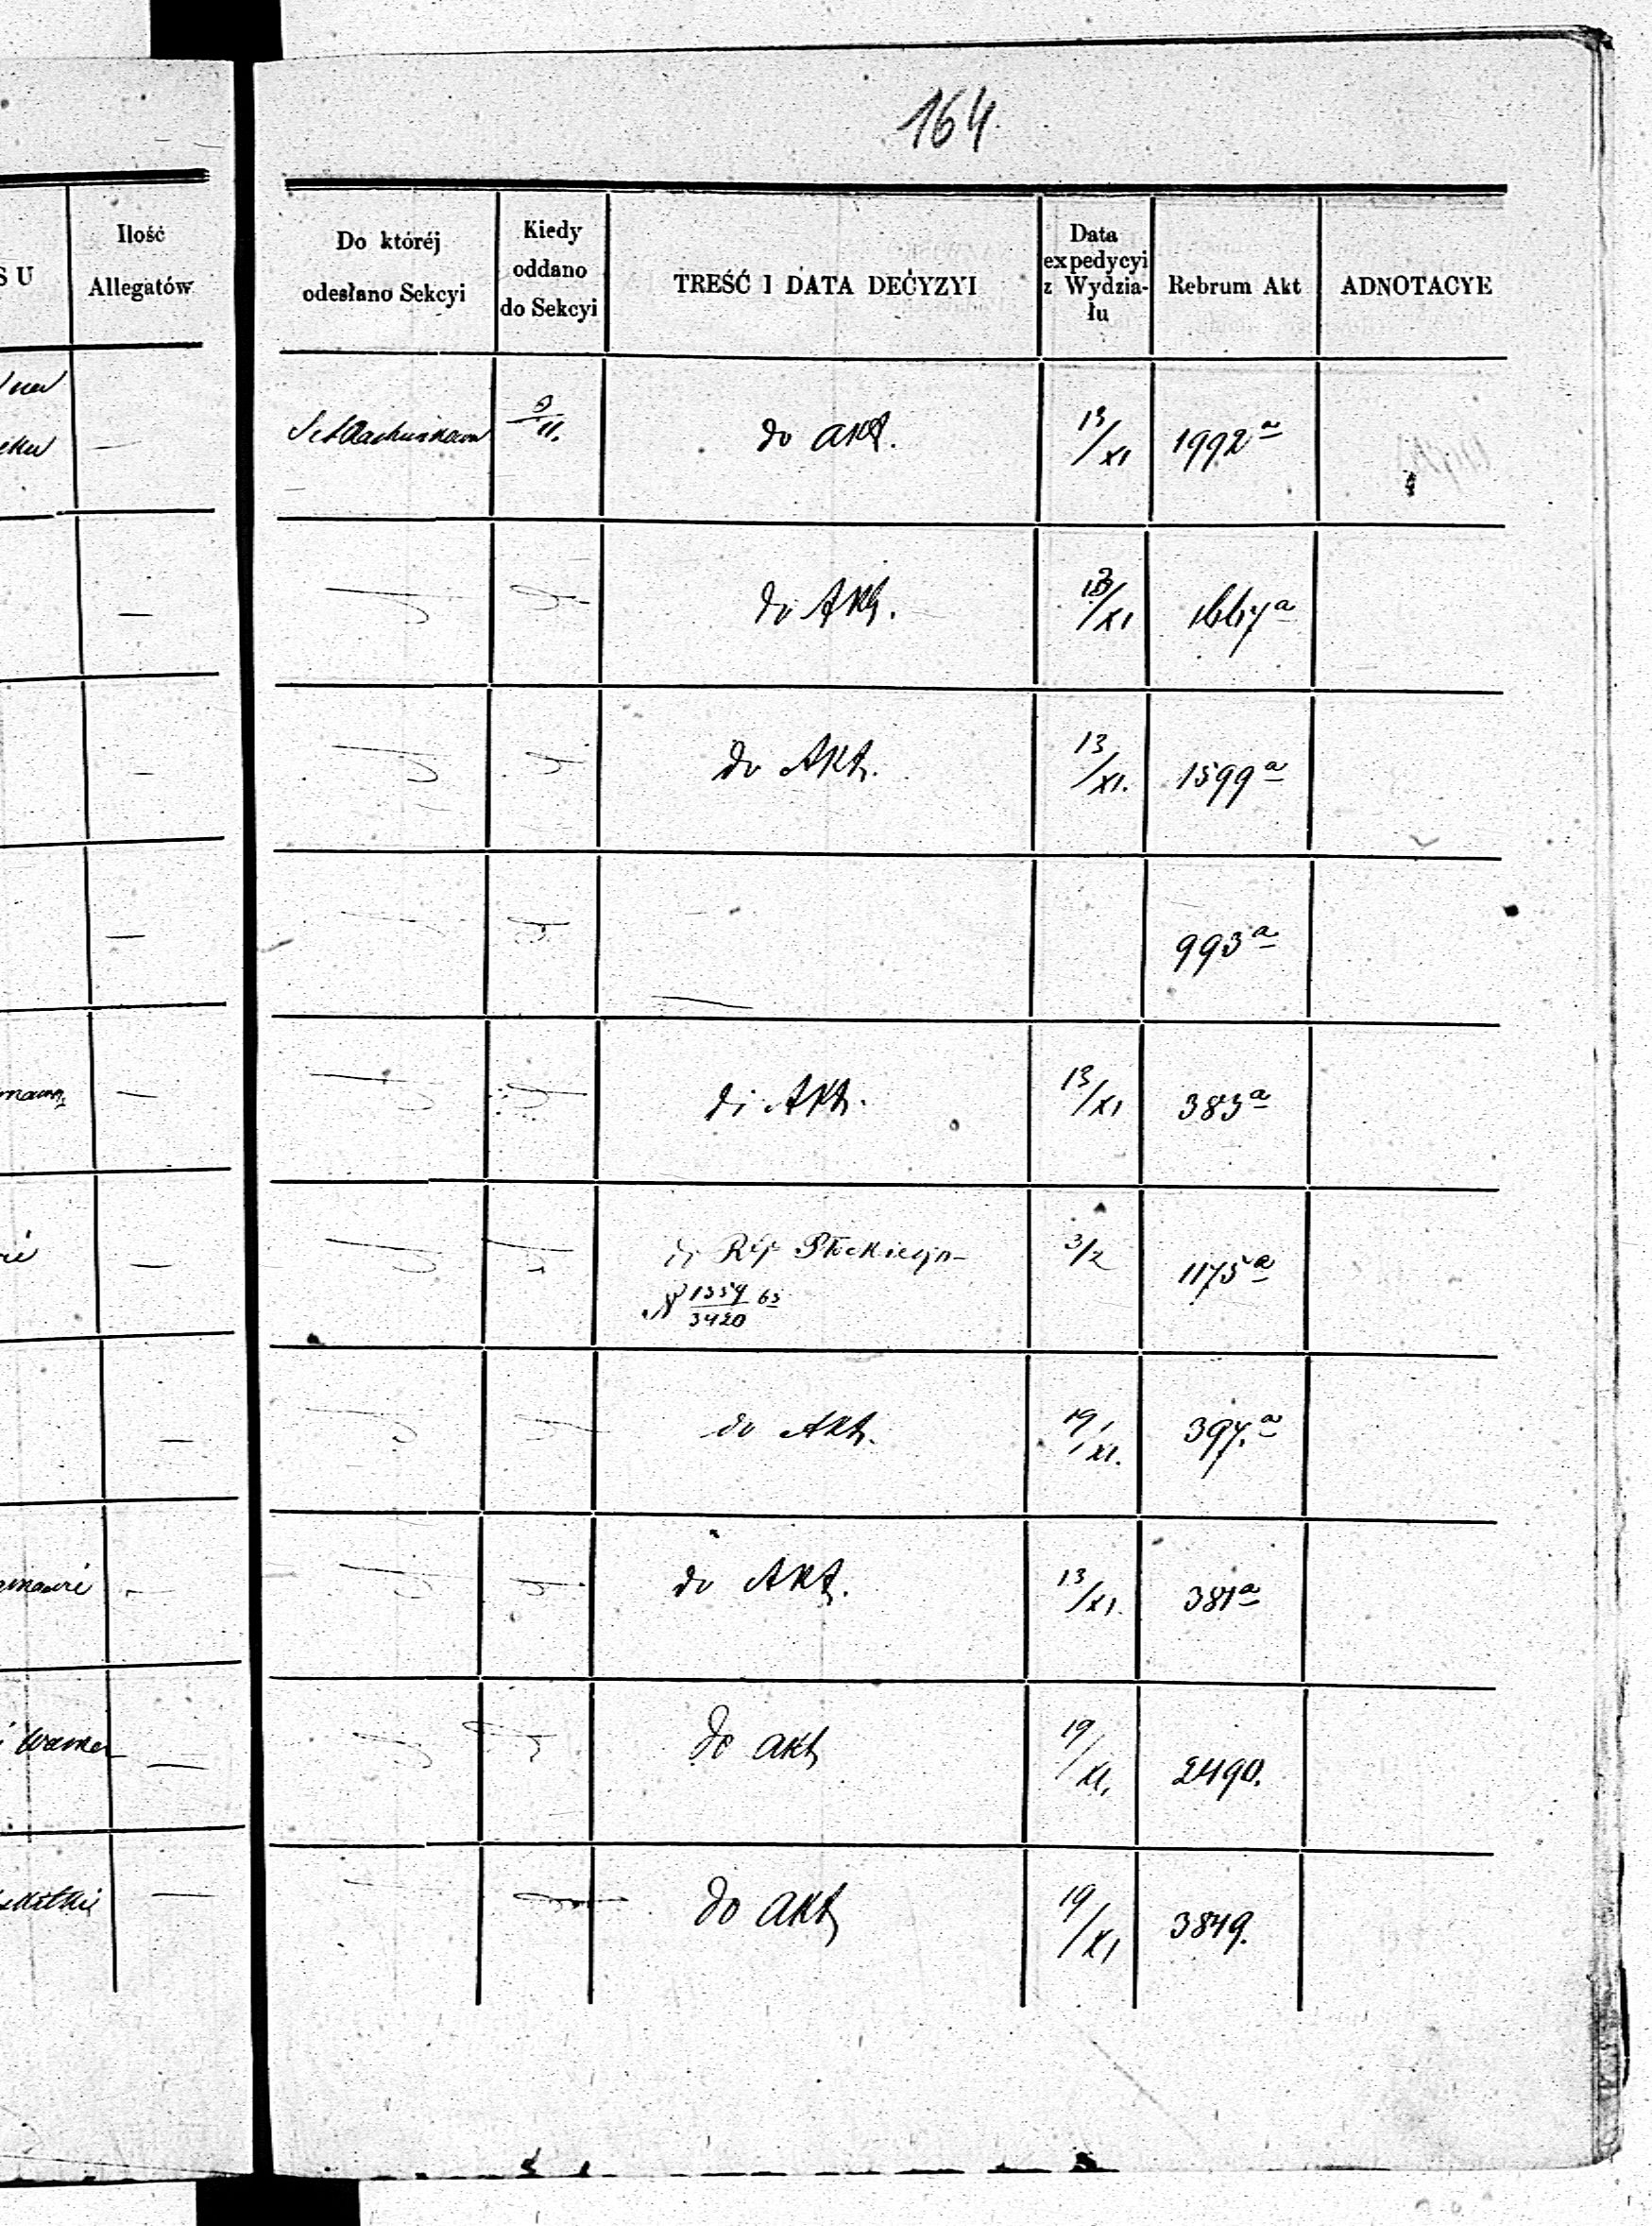 164
S U
Ilość
Allegatów
Do któréj
odesłano Sekcyi
Kiedy
oddano
do Sekcyi
TREŚĆ I DATA DECYZYI
Data
expedycyi
z Wydzia-
łu
Rebrum Akt
ADNOTACYE
9/11. do akt. 13/XI 1992 a
do Akt. 13/XI 1667 a
do Akt. 13/XI. 1599 a
993 a
do Akt. 13/XI 383 a
do Płockiego 3/2 1175 a
N 1359/3420 63
do Akt. 19/XI. 397. a
do Akt. 13/XI. 381 a
do akt 19/XI. 2490.
do akt 19/XI 3849.